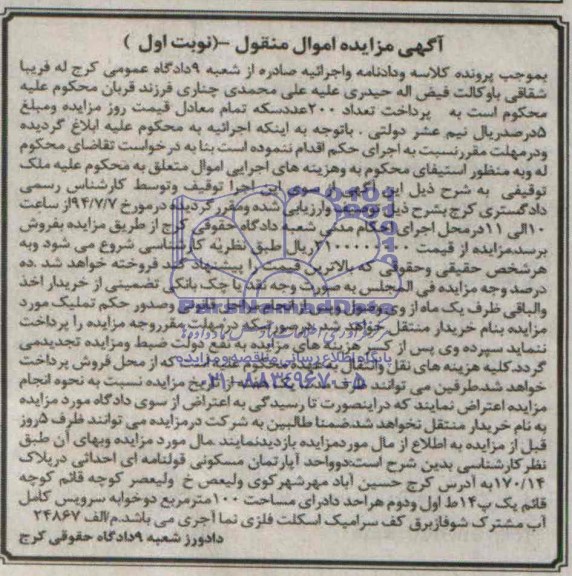 آگهی مزایده اموال منقول -(نوبت اول )
بموجب پرونده کلاسه ودادنامه واجرائیه صادره از شعبه ۹دادگاه عمومی کرج له فریبا
شقاقی باوکالت فیض اله حیدری علیه علی محمدی چناری فرزند قربان محکوم علیه
محکوم است به پرداخت تعداد ۲۰۰عددسکه تمام معادل قیمت روز مزایده ومبلغ
۵درصدریال نیم عشر دولتی . باتوجه به اینکه اجرائیه به محکوم علیه ابلاغ گردیده
ودرمهلت مقررنسبت به اجرای حکم اقدام ننموده است بنا به درخواست تقاضای محکوم
له وبه منظور استیفای محکوم به وهزینه های اجرایی اموال متعلق به محکوم علیه ملک
توقیفی به شرح ذیل این آگهی از سوی این اجرا توقیف وتوسط کارشناس رسمی
دادگستری کرج بشرح ذیل توصیف وارزیابی شده ومقررگردیده درمورخ ۹۴/۷/۷از ساعت
۱۰الی ۱۱درمحل اجرای احکام مدنی شعبه دادگاه حقوقی کرج از طریق مزایده بفروش
برسدمزایده از قیمت ریال طبق نظریه کارشناسی شروع می شود وبه
هرشخص حقیقی وحقوقی که بالاترین قیمت را پیشنهاد کند فروخته خواهد شد .ده
درصد وجه مزایده فی المجلس به صورت وجه نقد یا چک بانکی تضمینی از خریدار اخذ
والباقی ظرف یک ماه از وی وصول وپس از انجام مراحل قانونی وصدور حکم تملیک مورد
مزایده بنام خریدار منتقل خواهد شد.درصورتیکه درمهلت مقرروجه مزایده را پرداخت
ننماید سپرده وی پس از کسر هزینه های مزایده به نفع دولت ضبط ومزایده تجدیدمی
گردد.کلیه هزینه های نقل وانتقال به عهده محکوم علیه است که از محل فروش پرداخت
خواهد شد.طرفین می توانند ظرف از تاریخ مزایده نسبت به نحوه انجام
مزایده اعتراض نمایند که دراینصورت تا رسیدگی به اعتراض از سوی دادگاه مورد مزایده
به نام خریدار منتقل نخواهد شد.ضمنا طالبین به شرکت درمزایده می توانند ظرف ۵روز
قبل از مزایده به اطلاع از مال موردمزایده بازدیدنمایند .مال مورد مزایده وبهای آن طبق
نظر کارشناسی بدین شرح است:دوواحد آپارتمان مسکونی قولنامه ای احداثی درپلاک
۱۷۰/۱۴به آدرس کرج حسین آباد مهرشهرکوی ولیعص خ ولیعصر کوچه قائم کوچه
قائم یک پ۱۴ط اول ودوم هراحد دادرای مساحت ۱۰۰مترمربع دوخوابه سرویس کامل
آب مشترک شوفاژبرق کف سرامیک اسکلت فلزی نما آجری می باشد.م/الف ۲۴۸۶۷
دادورز شعبه ۹دادگاه حقوقی کرج
ParsNamadData
پایگاه اطلاع رسانی مناقصه و مزایده
۰۲۱-۸۸۳۴۹۶۷۰-۵